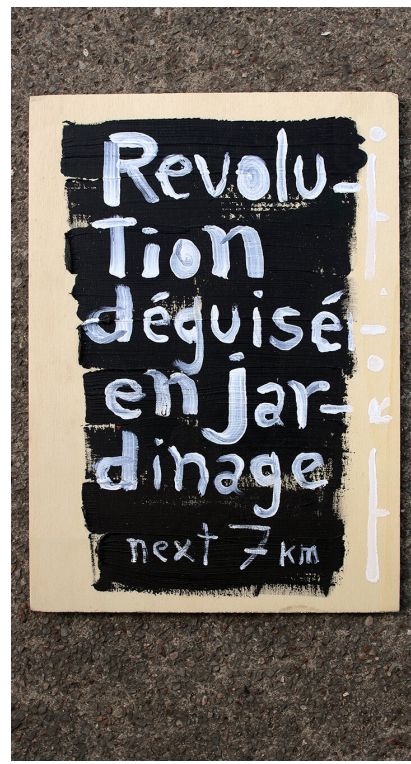 Revolu-
Tion
déguisé
en jar-
dinage
next 7 km